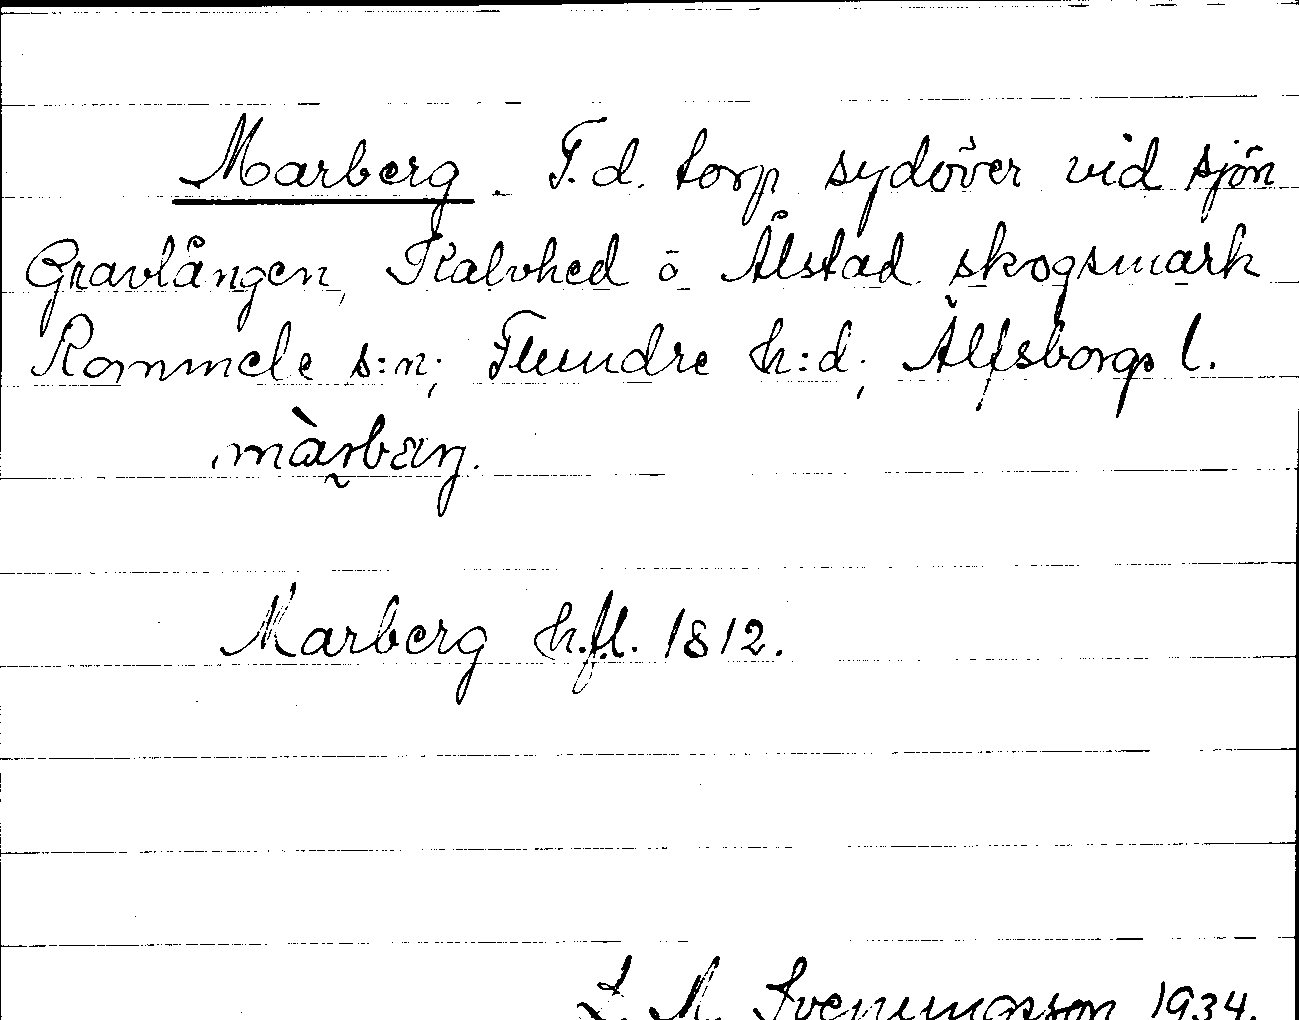 Marberg. F.d. torp sydöver vid sjön
Gravlången, Kalvhed ö Ålstad skogsmark
Rommele s:n; Flundre h:d; Älfsborgs l.
màrbærj.
Marberg h.fl. 1812.
L. M. Svenungsson 1934.